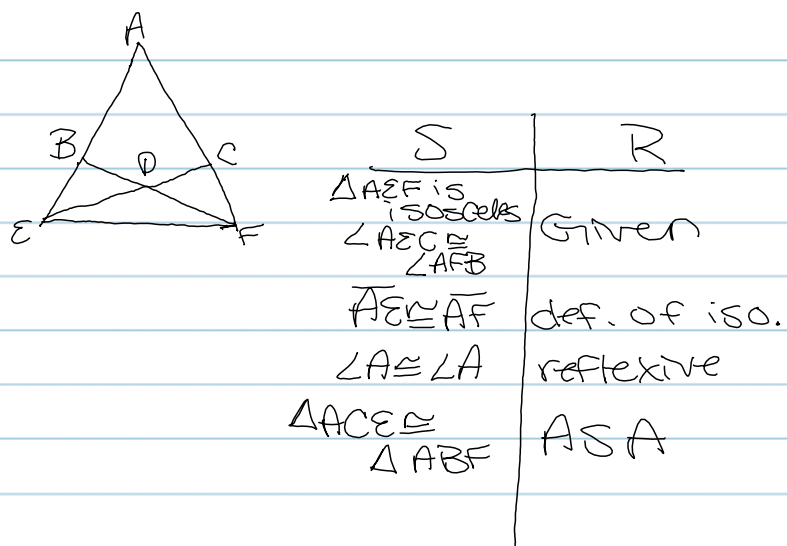 A
B
D
C
E
F
S R
△AEF is
isosceles
Given
∠AEC ≅
∠AFB
AE ≅ AF def. of iso.
∠A ≅ ∠A reflexive
△ACE ≅
△ABF
ASA